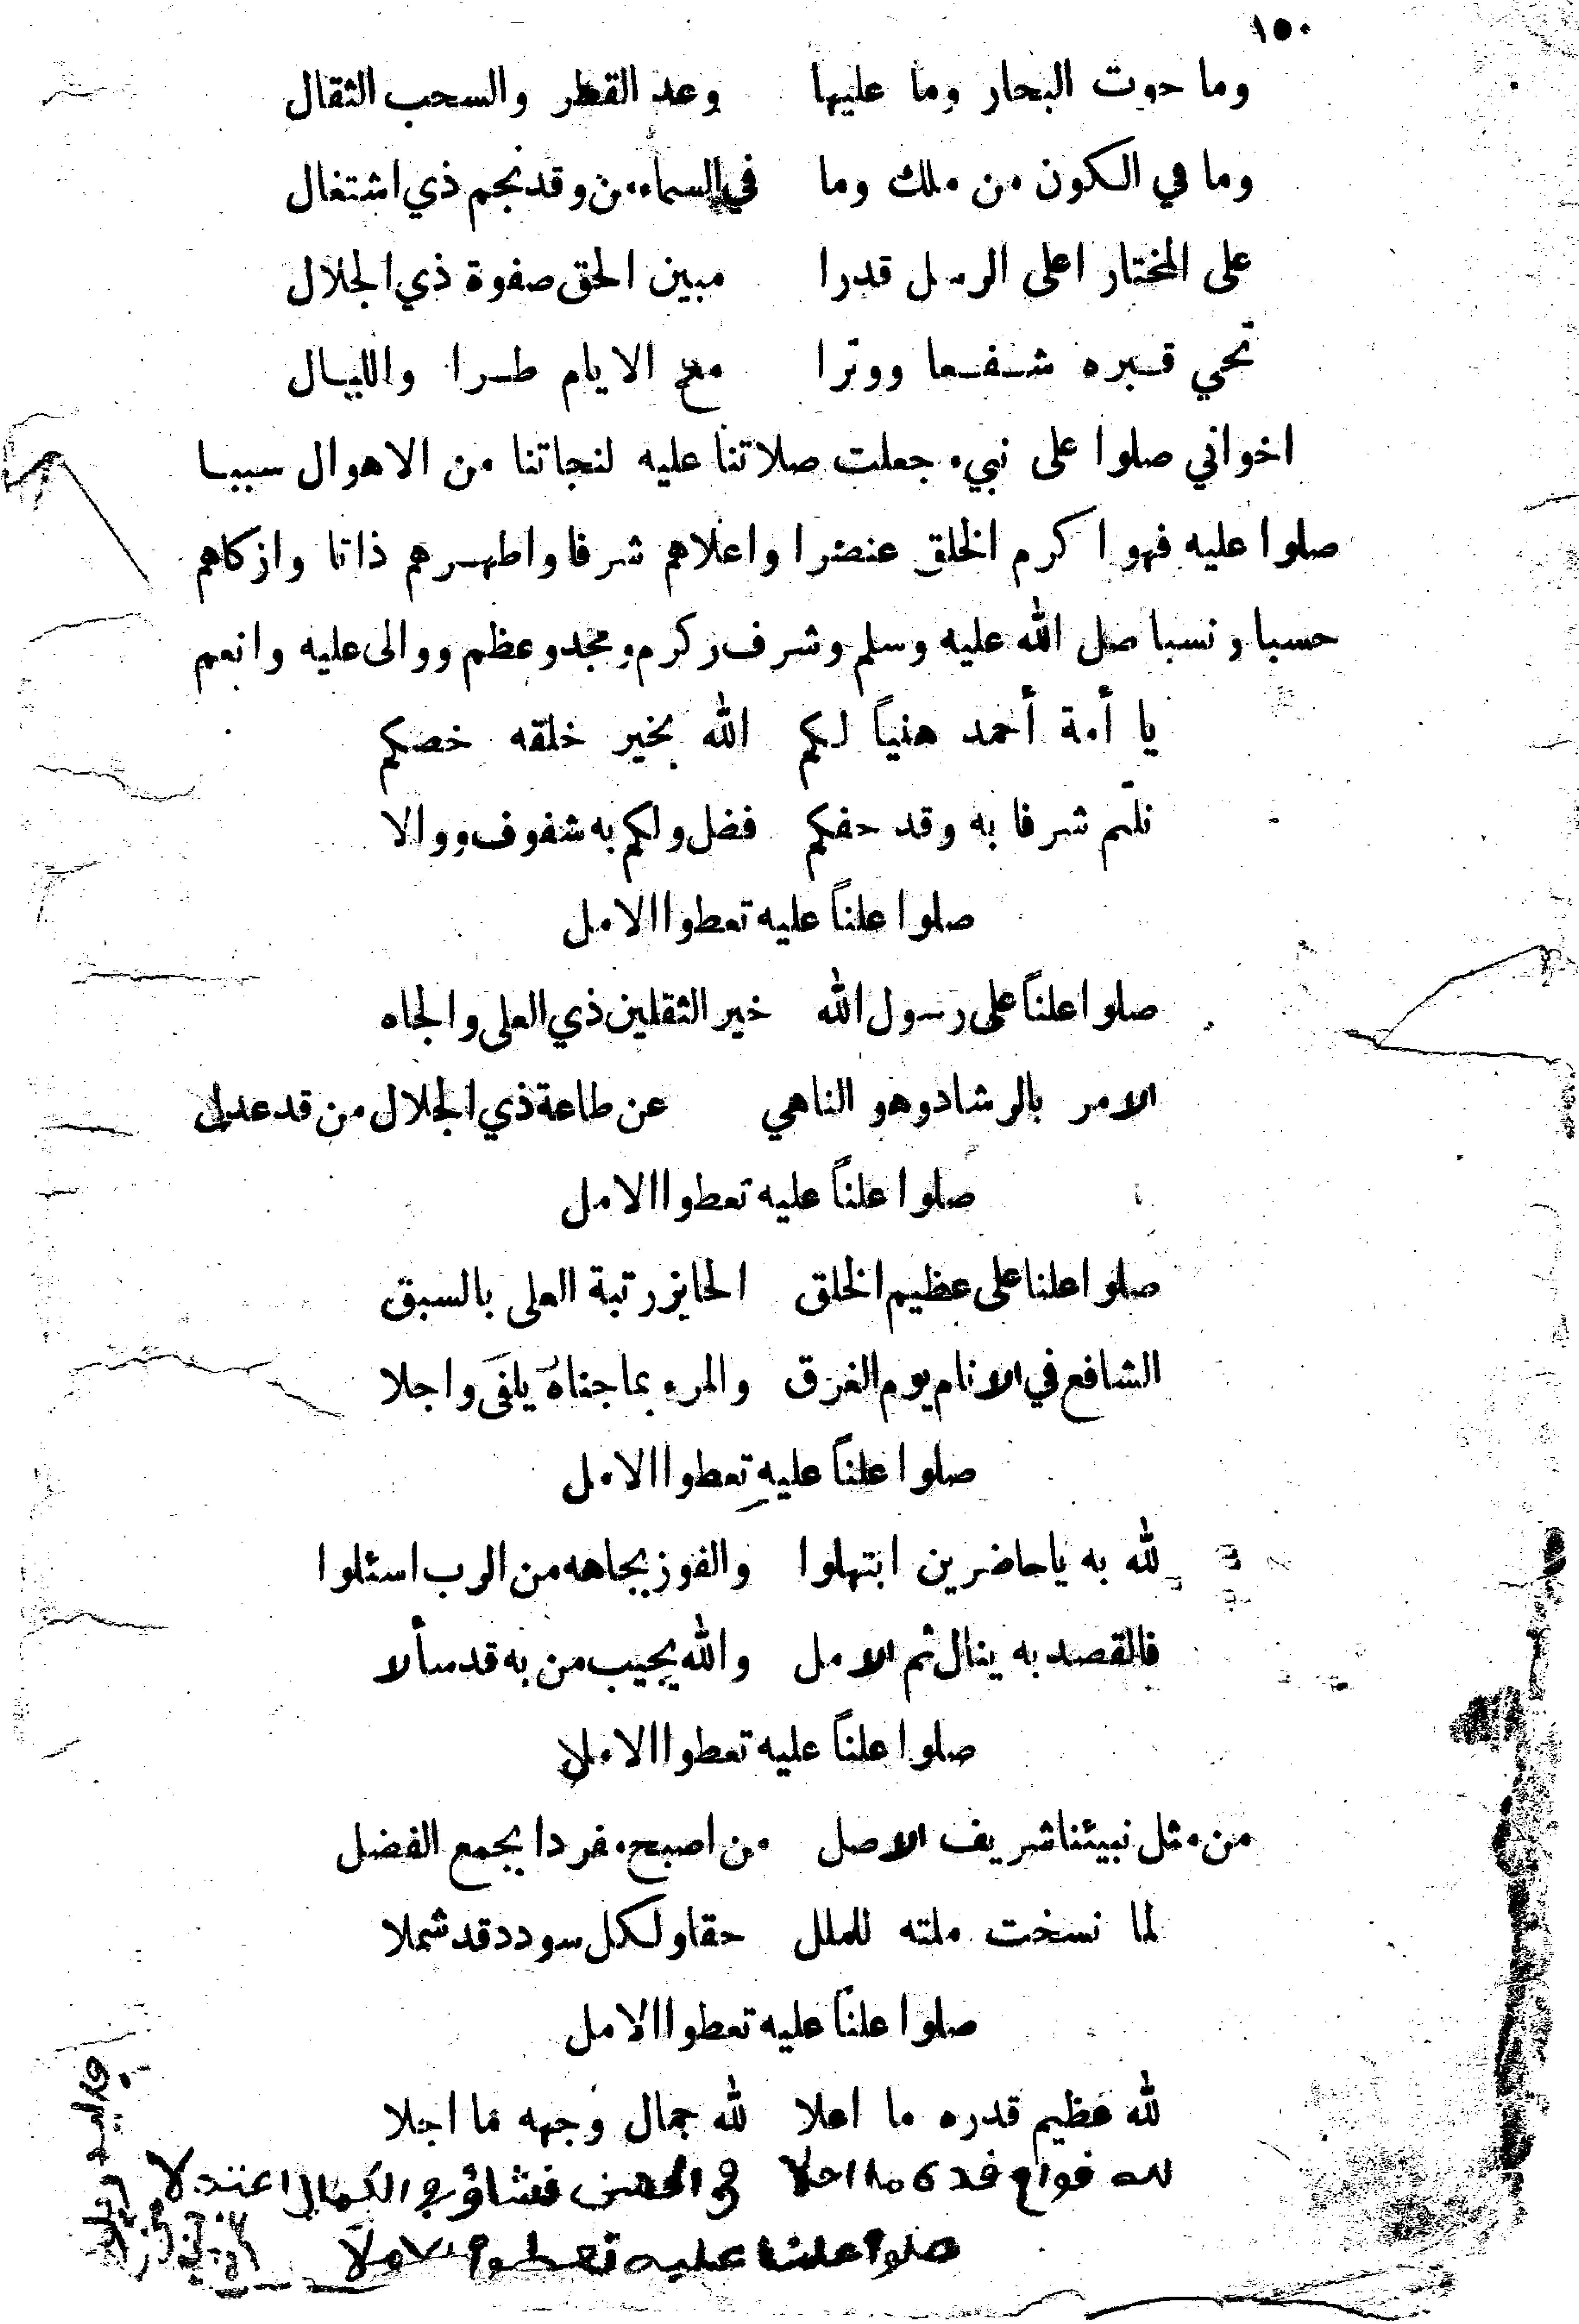 ١٥٠
وما حوت البحار وما عليها وعد القطر والسحب الثقال
وما في الكون من ملك وما في السماء من وقد نجم ذي اشتغال
على المختار اعلى الرسل قدرا مبين الحق صفوة ذي الجلال
تحي قبره شفعا ووترا مع الايام طرا والليال
اخواني صلوا على نبيء جعلت صلاتنا عليه لنجاتنا من الاهوال سببا
صلوا عليه فهو اكرم الخلق عنصرا واعلاهم شرفا واطهرهم ذاتا وازكاهم
حسبا ونسبا صل الله عليه وسلم وشرف وكرم ومجد وعظم ووالى عليه وانعم
يا أمة أحمد هنياً لكم الله بخير خلقه خصكم
نلتم شرفا به وقد حفكم فضل ولكم به شفوف وولا
صلوا علناً عليه تعطوا الامل
صلوا علناً على رسول الله خير الثقلين ذي العلى والجاه
الامر بالرشاد وهو الناهي عن طاعة ذي الجلال من قد عدل
صلوا علناً عليه تعطوا الامل
صلوا علنا على عظيم الخلق الحايز رتبة العلى بالسبق
الشافع في الانام يوم الغرق والمرء بما جناهُ يلفَى واجلا
صلوا علناً عليه تعطوا الامل
لله به يا حاضرين ابتهلوا والفوز بجاهه من الرب اسئلوا
فالقصد به ينال ثم الامل والله يجيب من به قد سألا
صلوا علناً عليه تعطوا الاملا
من مثل نبيئنا شريف الاصل من اصبح مفردا بجمع الفضل
لما نسخت ملته للملل حقا ولكل سودد قد شملا
صلوا علناً عليه تعطوا الامل
لله عظيم قدره ما اعلا لله جمال وجهه ما اجلا
لله قوام قده ما احلا في الحسن فشاؤ في الكمال اعتدلا
صلوا علنا عليه تعطوا الاملا